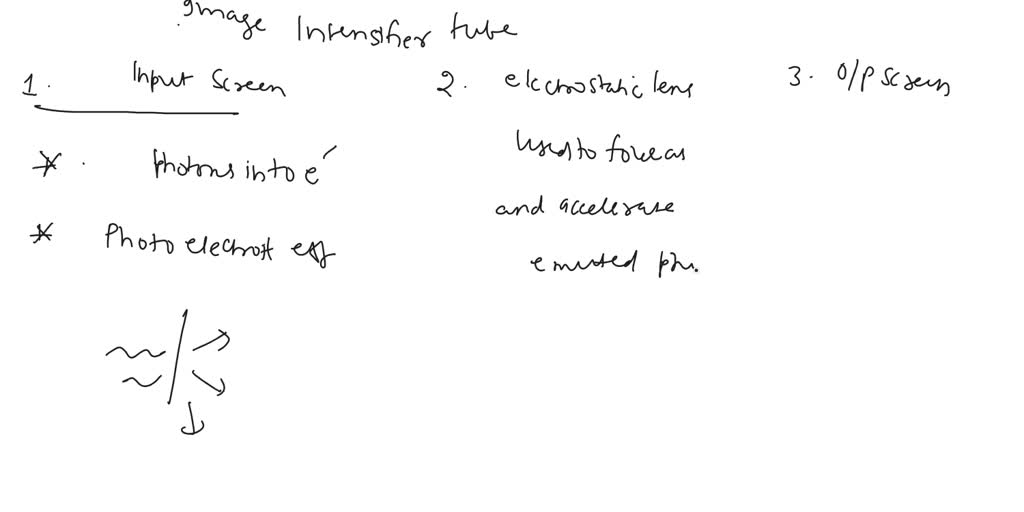 Image Intensifier tube
1. Input Screen
* . Photons into e-
* Photo electrost eff
2. electrostatic lens
Used to foucas
and accelerase
emitted pho.
3. O/P Screen